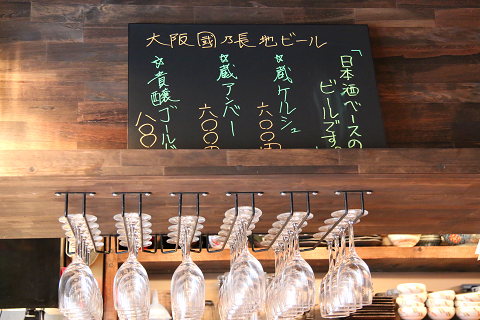 大阪 國乃長 地ビール
「日本酒ベースの
ビールです。
☆蔵ケルシュ
六〇〇円
☆蔵アンバー
六〇〇円
☆貴醸ゴールド
八〇〇